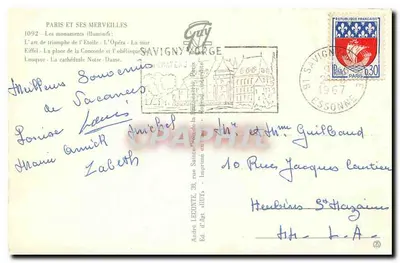 PARIS ET SES MERVEILLES
1092 - Les monuments (Illuminés)
L'arc de triomphe de l'Etoile - L'Opéra - La tour
Eiffel - La place de la Concorde et l'obélisque de
Louqsor - La cathédrale Notre-Dame.
Guy
SAVIGNY S/ORGE
91 SAVIGNY
1967
ESSONNE
REPUBLIQUE FRANÇAISE
PARIS
0,30
POSTES
Meilleurs Souvenirs
de Vacances
Louise Louis Michel
Marie Annick
Zabeth
André LECONTE, 38, rue Sainte
Ed. d'Art "GUY" - Imprimé en
Mr et Mme Guilbaud
10 Rue Jacques Cartier
Herbins St Nazaire
L.A.